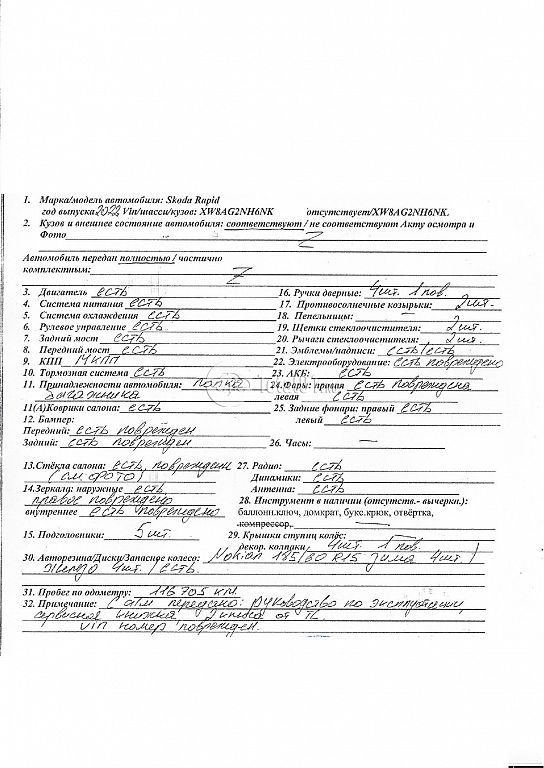 1. Марка/модель автомобиля: Skoda Rapid
год выпуска 2022 Vin/шасси/кузов: XW8AG2NH6NK отсутствует/XW8AG2NH6NK
2. Кузов и внешнее состояние автомобиля: соответствуют / не соответствуют Акту осмотра и
Фото Z
Автомобиль передан полностью / частично
комплектным: Z
3. Двигатель есть
16. Ручки дверные: 4шт. 1 пов.
4. Система питания есть
17. Противосолнечные козырьки: 2шт.
5. Система охлаждения есть
18. Пепельницы: —
6. Рулевое управление есть
19. Щетки стеклоочистителя: 2шт.
7. Задний мост есть
20. Рычаги стеклоочистителя: 2шт.
8. Передний мост есть
21. Эмблемы/надписи: есть/есть
9. КПП МКПП
22. Электрооборудование: есть повреждено
10. Тормозная система есть
23. АКБ: есть
11. Принадлежности автомобиля: полка
багажника
24.Фары: правая есть повреждена
левая есть
11(А)Коврики салона: есть
25. Задние фонари: правый есть
левый есть
12. Бампер:
Передний: есть поврежден
Задний: есть поврежден
26. Часы: —
13.Стёкла салона: есть, поврежден
(см фото)
27. Радио: есть
Динамики: есть
Антенна: есть
14.Зеркала: наружные есть
правое повреждено
внутреннее есть повреждено
28. Инструмент в наличии (отсутств.- вычеркн.):
баллонн.ключ, домкрат, букс.крюк, отвёртка,
компрессор,
15. Подголовники: 5шт.
29. Крышки ступиц колёс:
декор. колпаки 4шт. 1 пов.
30. Авторезина/Диски/Запасное колесо: Nokian 185/60 R15 зима 4шт. /
железо 4шт. / есть.
31. Пробег по одометру: 116 705 км.
32. Примечание: С а/м передано: руководство по эксплуатации,
сервисная книжка,
VIN номер поврежден.